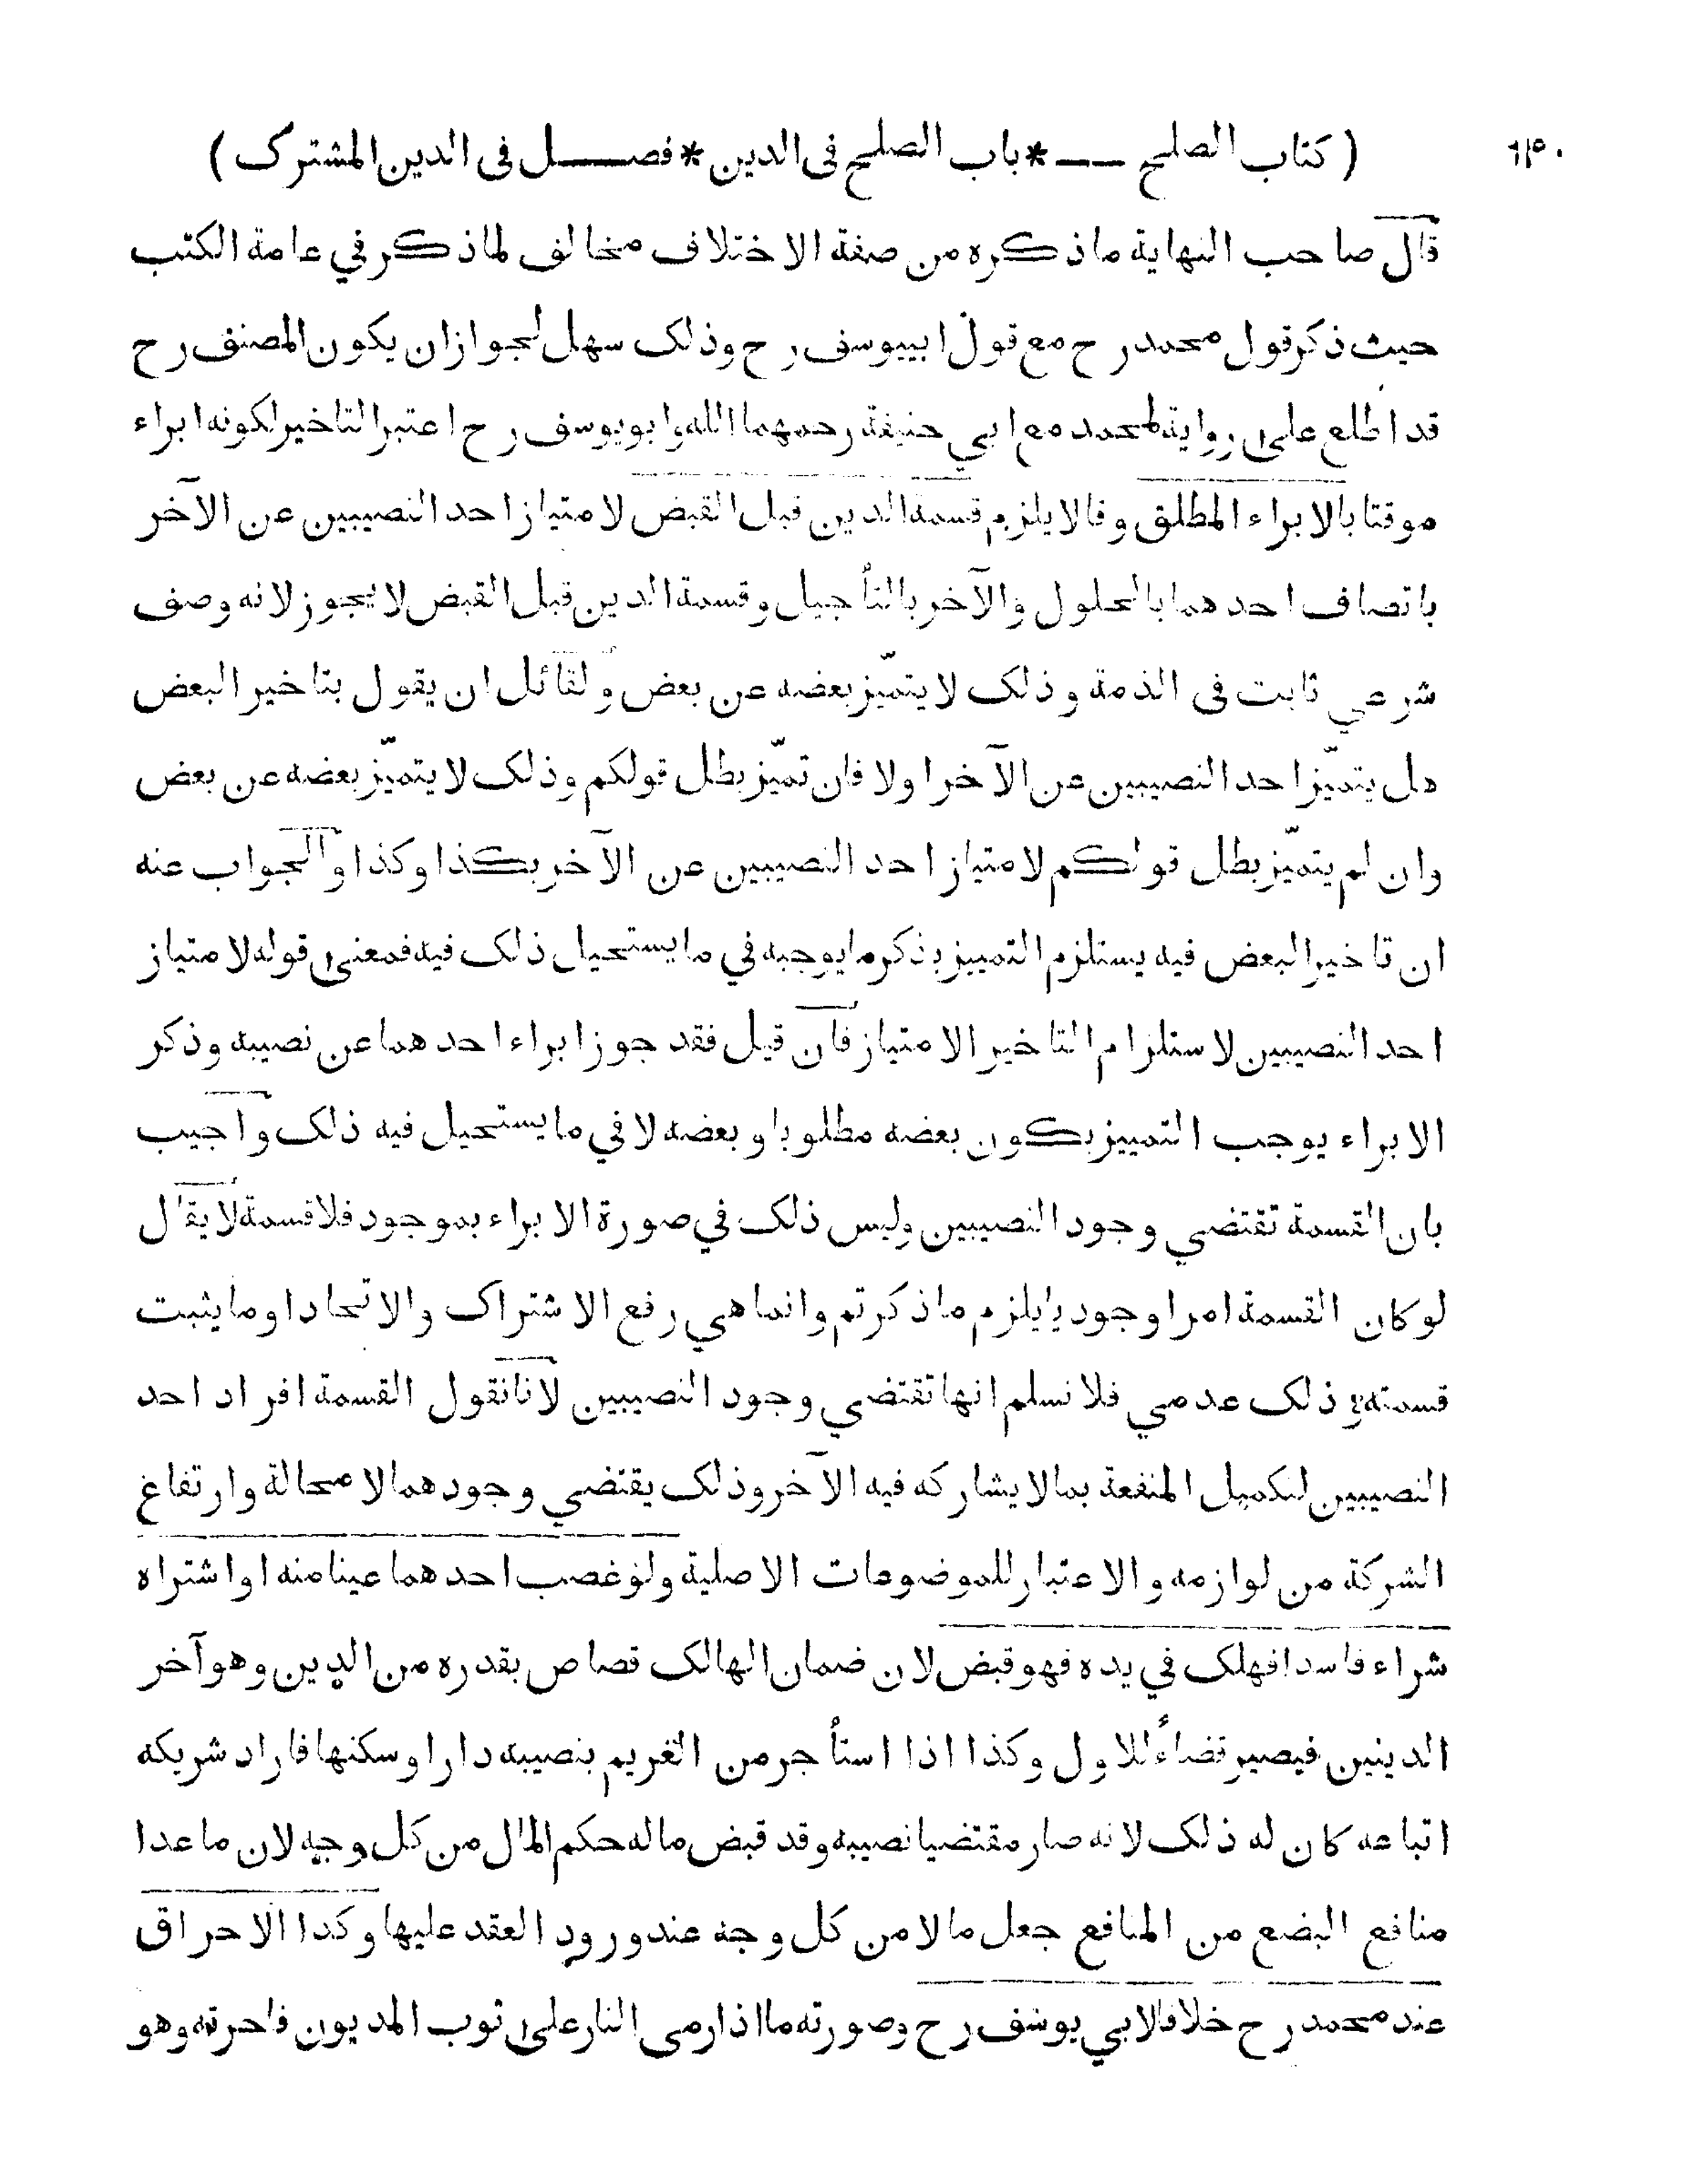 ( كتاب الصلح — * باب الصلح فى الدين * فصل فى الدين المشترك )
قال صاحب النهاية ما ذكره من صفة الاختلاف مخالف لما ذكر في عامة الكتب
حيث ذكر قول محمد رح مع قول ابييوسف رح وذلك سهل لجوازان يكون المصنف رح
قد اطلع على رواية لمحمد مع ابي حنيفة رحمهما الله وابويوسف رح اعتبر التاخير لكونه ابراء
موقتا بالابراء المطلق وقالا يلزم قسمة الدين قبل القبض لامتياز احد النصيبين عن الآخر
باتصاف احدهما بالحلول والآخر بالتأجيل وقسمة الدين قبل القبض لا يجوز لانه وصف
شرعي ثابت فى الذمة وذلك لا يتميّز بعضه عن بعض ولقائل ان يقول بتاخير البعض
هل يتميّز احد النصيبين عن الآخر اولا فان تميّز بطل قولكم وذلك لا يتميّز بعضه عن بعض
وان لم يتميّز بطل قولكم لامتياز احد النصيبين عن الآخر بكذا وكذا والجواب عنه
ان تاخير البعض فيه يستلزم التمييز بذكر ما يوجبه في ما يستحيل ذلك فيه فمعنى قوله لامتياز
احد النصيبين لاستلزام التاخير الامتياز فان قيل فقد جوز ابراء احدهما عن نصيبه وذكر
الابراء يوجب التمييز بكون بعضه مطلوبا وبعضه لا في ما يستحيل فيه ذلك واجيب
بان القسمة تقتضي وجود النصيبين وليس ذلك في صورة الابراء بموجود فلا قسمة لا يقال
لوكان القسمة امرا وجوديا يلزم ما ذكرتم وانما هي رفع الاشتراك والاتحاد اوما يثبت
قسمته وذلك عدمي فلا نسلم انها تقتضي وجود النصيبين لانا نقول القسمة افراد احد
النصيبين لتكميل المنفعة بما لا يشاركه فيه الآخر وذلك يقتضي وجودهما لا محالة وارتفاع
الشركة من لوازمه والاعتبار للموضوعات الاصلية ولو غصب احدهما عينا منه او اشتراه
شراء فاسدا فهلك في يده فهو قبض لان ضمان الهالك قصاص بقدره من الدين وهو آخر
الدينين فيصير قضاءً للاول وكذا اذا استأجر من الغريم بنصيبه دارا وسكنها فاراد شريكه
اتباعه كان له ذلك لانه صار مقتضيا نصيبه وقد قبض ماله حكم المال من كل وجه لان ما عدا
منافع البضع من المنافع جعل مالا من كل وجه عند ورود العقد عليها وكذا الاحراق
عند محمد رح خلافا لابي يوسف رح وصورته ما اذا رمى النار على ثوب المديون فاحرقه وهو